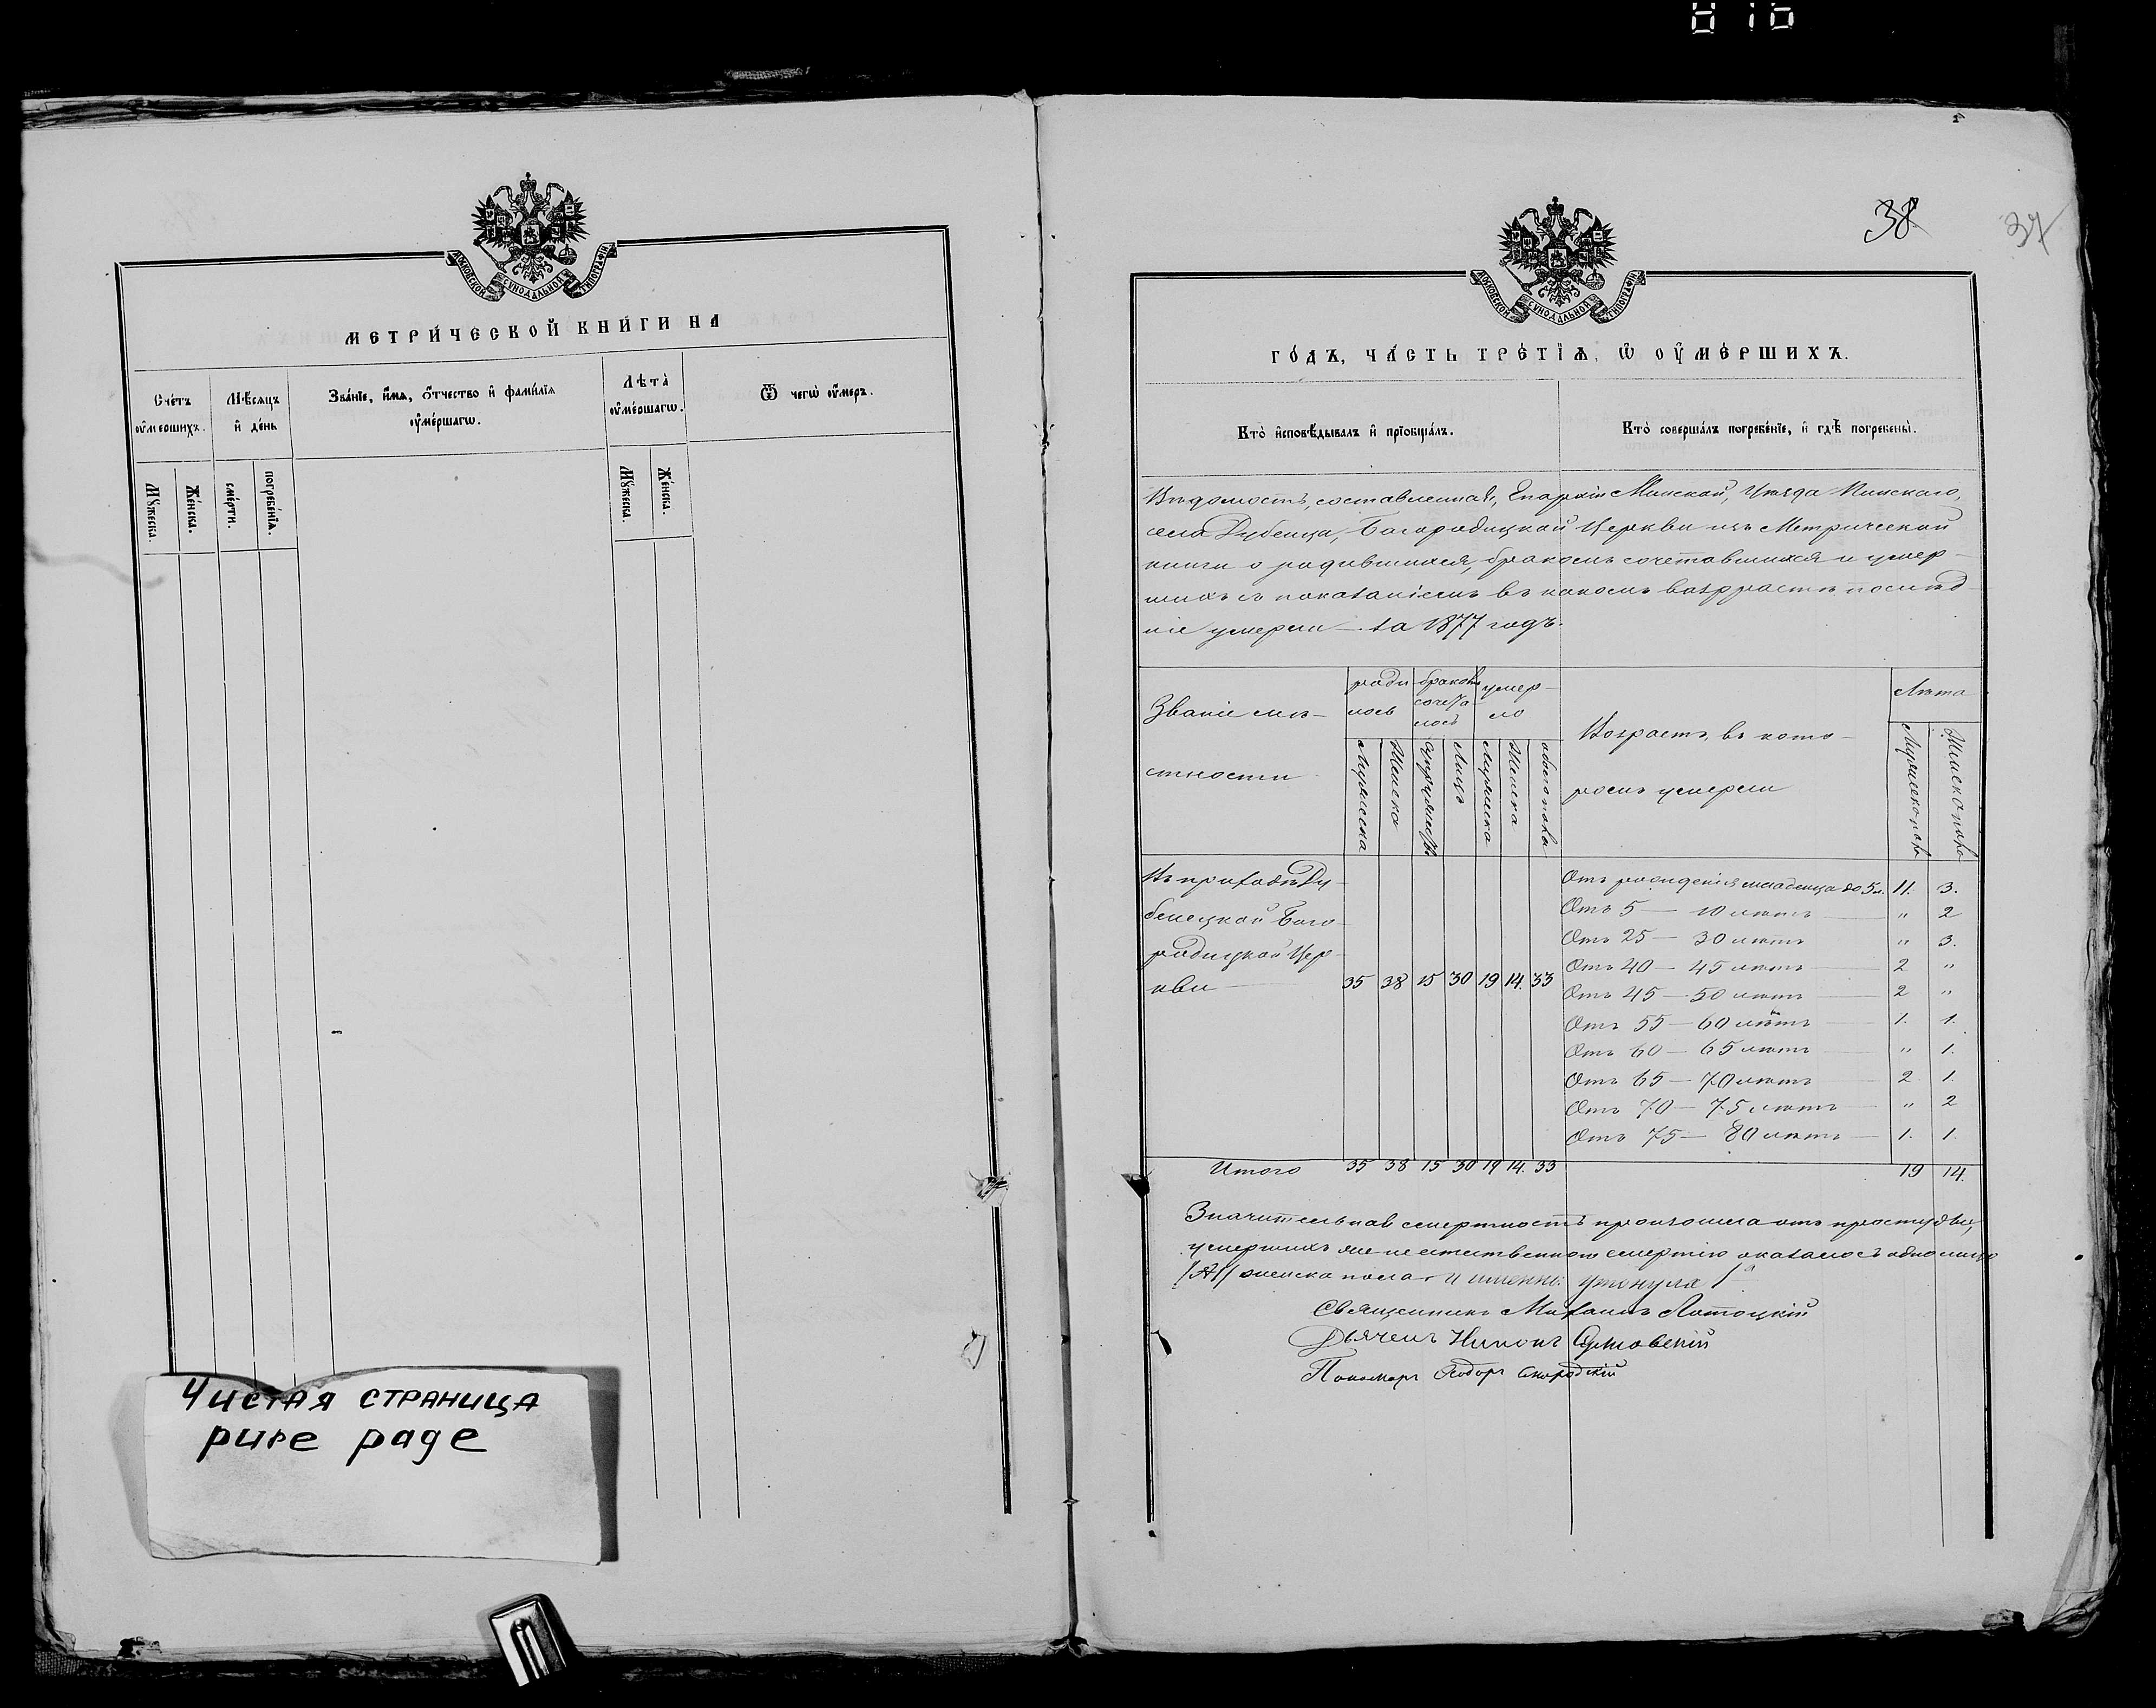 МОСКОВСКОЙ СѴНОДАЛЬНОЙ ТИПОГРАФІИ
МЕТРИ́ЧЕСКОЙ КНИ́ГИ НА
Сче́тъ ᲂу҆ме́ршихъ.
Мѣ́сяцъ и҆ де́нь
Зва́нїе, и҆́мѧ, ѻ҆́тчество и҆ фами́лїѧ ᲂу҆ме́ршагѡ.
Лѣ́та ᲂу҆ме́ршагѡ.
Ѿ чегѡ̀ ᲂу҆́меръ.
Мꙋ́жеска.
Же́нска.
сме́рти.
погребе́нїѧ.
Мꙋ́жеска.
Же́нска.
Чистая страница
pure page
38
37
МОСКОВСКОЙ СѴНОДАЛЬНОЙ ТИПОГРАФІИ
ГО́ДЪ, ЧА́СТЬ ТРЕ́ТЇѦ, Ѡ҆ ОУ҆МЕ́РШИХЪ.
Кто̀ и҆сповѣ́дывалъ и҆ прїѡбща́лъ.
Кто̀ соверша́лъ погребе́нїе, и҆ гдѣ̀ погребены̀.
Вѣдомость, составленная, Епархіи Минской, Уѣзда Пинскаго,
села Дубенца, Богородицкой Церкви изъ Метрической
книги о родившихся, бракомъ сочетавшихся и умер-
шихъ съ показаніемъ въ какомъ возррастѣ послѣд-
ніе умерли — за 1877 годъ.
Званіе мѣ-
стности
роди-
лось
бракомъ
сочета-
лось
умер-
ло
Возрастъ, въ кото-
ромъ умерли
Лѣта
Мужеска
Женска
Супружествъ
Лицъ
Мужеска
Женска
обоего пола
Мужеска пола
Женска пола
Въ приходѣ Ду-
бенецкой Бого-
родицкой Цер-
кви — 35 38 15 30 19 14. 33
Отъ рожденія младенца до 5 л. 11. 3.
Отъ 5 — 10 лѣтъ — " 2
Отъ 25 — 30 лѣтъ " 3.
Отъ 40 — 45 лѣтъ — 2 "
Отъ 45 — 50 лѣтъ — 2 "
Отъ 55 — 60 лѣтъ — 1. 1.
Отъ 60 — 65 лѣтъ — " 1.
Отъ 65 — 70 лѣтъ — 2. 1.
Отъ 70 — 75 лѣтъ — " 2
Отъ 75 — 80 лѣтъ — 1. 1.
Итого 35 38 15 30 19 14. 33 19 14.
Значительная смертность произошла отъ простуды,
умершихъ же не естественною смертію оказалось одно лицо
женска пола и именно: утонула 1
Священникъ Михаилъ Лотоцкій
Дьячекъ Никонъ
Пономарь Ѳодоръ